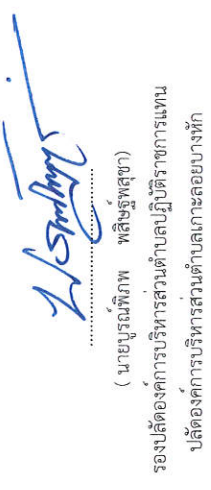 ( นายบูรณ์พิภพ พลิษฐ์พสุชา)
รองปลัดองค์การบริหารส่วนตำบลปฏิบัติราชการแทน
ปลัดองค์การบริหารส่วนตำบลเกาะลอยบางหัก